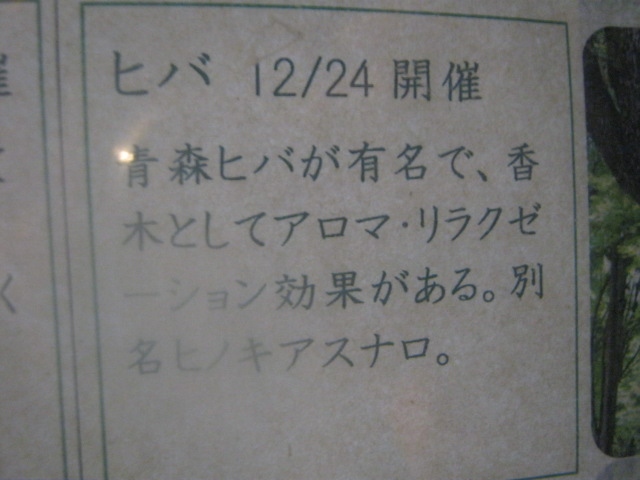 ヒバ 12/24 開催
青森ヒバが有名で、香
木としてアロマ・リラクゼ
ーション効果がある。別
名ヒノキアスナロ。